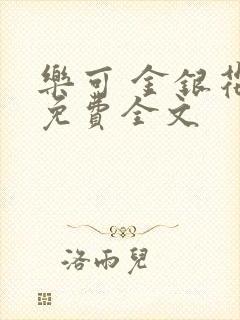 樂可 金銀花
免費全文
洛雨兒